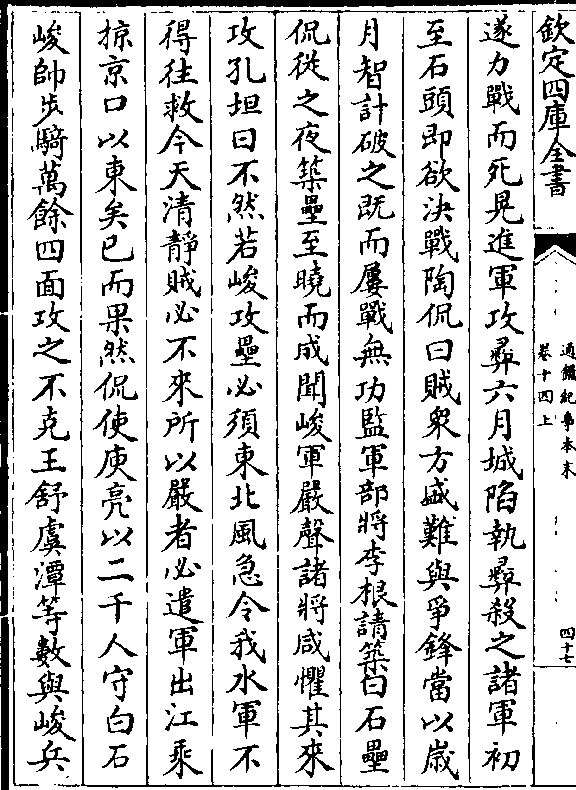 欽定四庫全書
通鑑紀事本末
卷十四上
四十七
遂力戰而死晃進軍攻彞六月城陷執彞殺之諸軍初
至石頭即欲決戰陶侃曰賊衆方盛難與爭鋒當以歲
月智計破之既而屢戰無功監軍部將李根請築白石壘
侃從之夜築壘至曉而成聞峻軍嚴聲諸將咸懼其來
攻孔坦曰不然若峻攻壘必須東北風急令我水軍不
得往救今天清靜賊必不來所以嚴者必遣軍出江乘
掠京口以東矣已而果然侃使庾亮以二千人守白石
峻帥步騎萬餘四面攻之不克王舒虞潭等數與峻兵